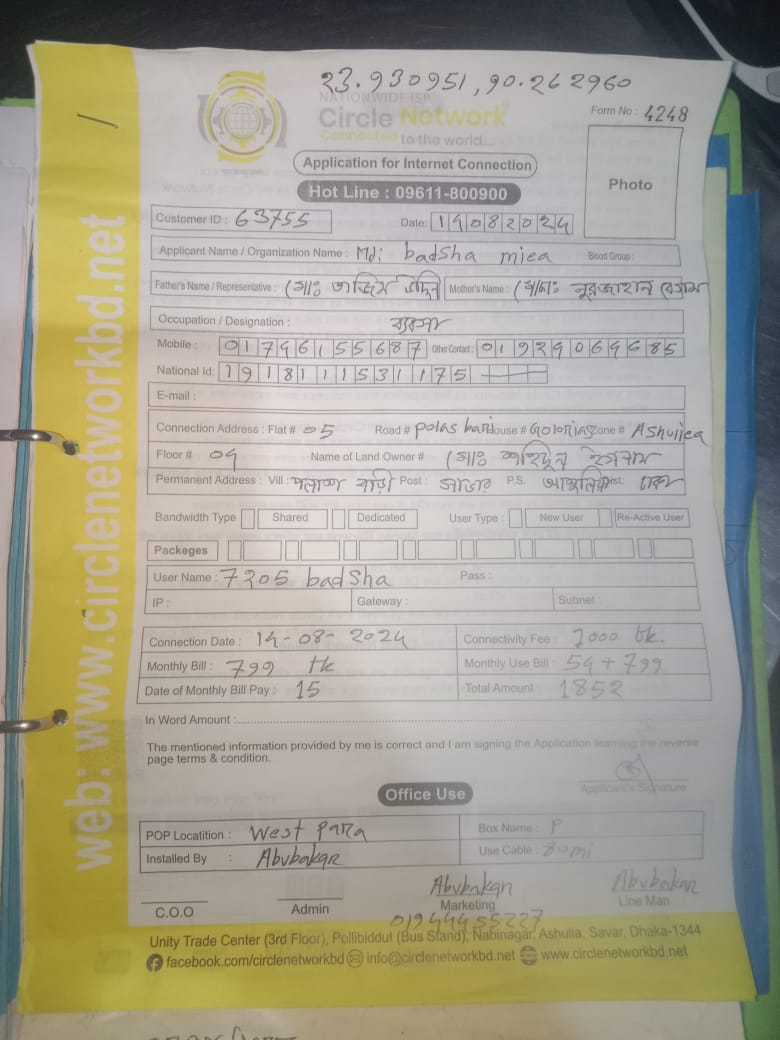 23.930951, 90.262960
NATIONWIDE ISP
Circle Network
Connected to the world...
Form No : 4248
Application for Internet Connection
Photo
Hot Line : 09611-800900
Customer ID : 63755 Date: 14082024
Applicant Name / Organization Name : Md: badsha miea Blood Group :
Father's Name / Representative : মোঃ তাজিম উদ্দিন Mother's Name : মোছাঃ নুরজাহান বেগম
Occupation / Designation : ব্যবসা
Mobile : 01796155687 Other Contact : 01929069685
National Id: 1918111531175
E-mail :
Connection Address : Flat # 05 Road # polas bari House # Zone # Ashuliea
Floor # 04 Name of Land Owner # মোঃ শহিদুল ইসলাম
Permanent Address : Vill : পলাশ বাড়ী Post : সাভার P.S. আশুলিয়া Dist: ঢাকা
Bandwidth Type Shared Dedicated User Type : New User Re-Active User
Packeges
User Name : 7205 badsha Pass :
IP : Gateway : Subnet :
Connection Date : 14-08-2024 Connectivity Fee : 1000 tk.
Monthly Bill : 799 tk Monthly Use Bill : 54 + 799
Date of Monthly Bill Pay : 15 Total Amount : 1852
In Word Amount :
The mentioned information provided by me is correct and I am signing the Application learning the reverse
page terms & condition.
Applicant's Signature
Office Use
POP Locatition : West para Box Name : P
Installed By : Abubakar Use Cable : 80mi
Abubakar Abubakar
C.O.O Admin Marketing Line Man
01944455227
Unity Trade Center (3rd Floor), Pollibiddut (Bus Stand), Nabinagar, Ashulia, Savar, Dhaka-1344
facebook.com/circlenetworkbd info@circlenetworkbd.net www.circlenetworkbd.net
web: www.circlenetworkbd.net